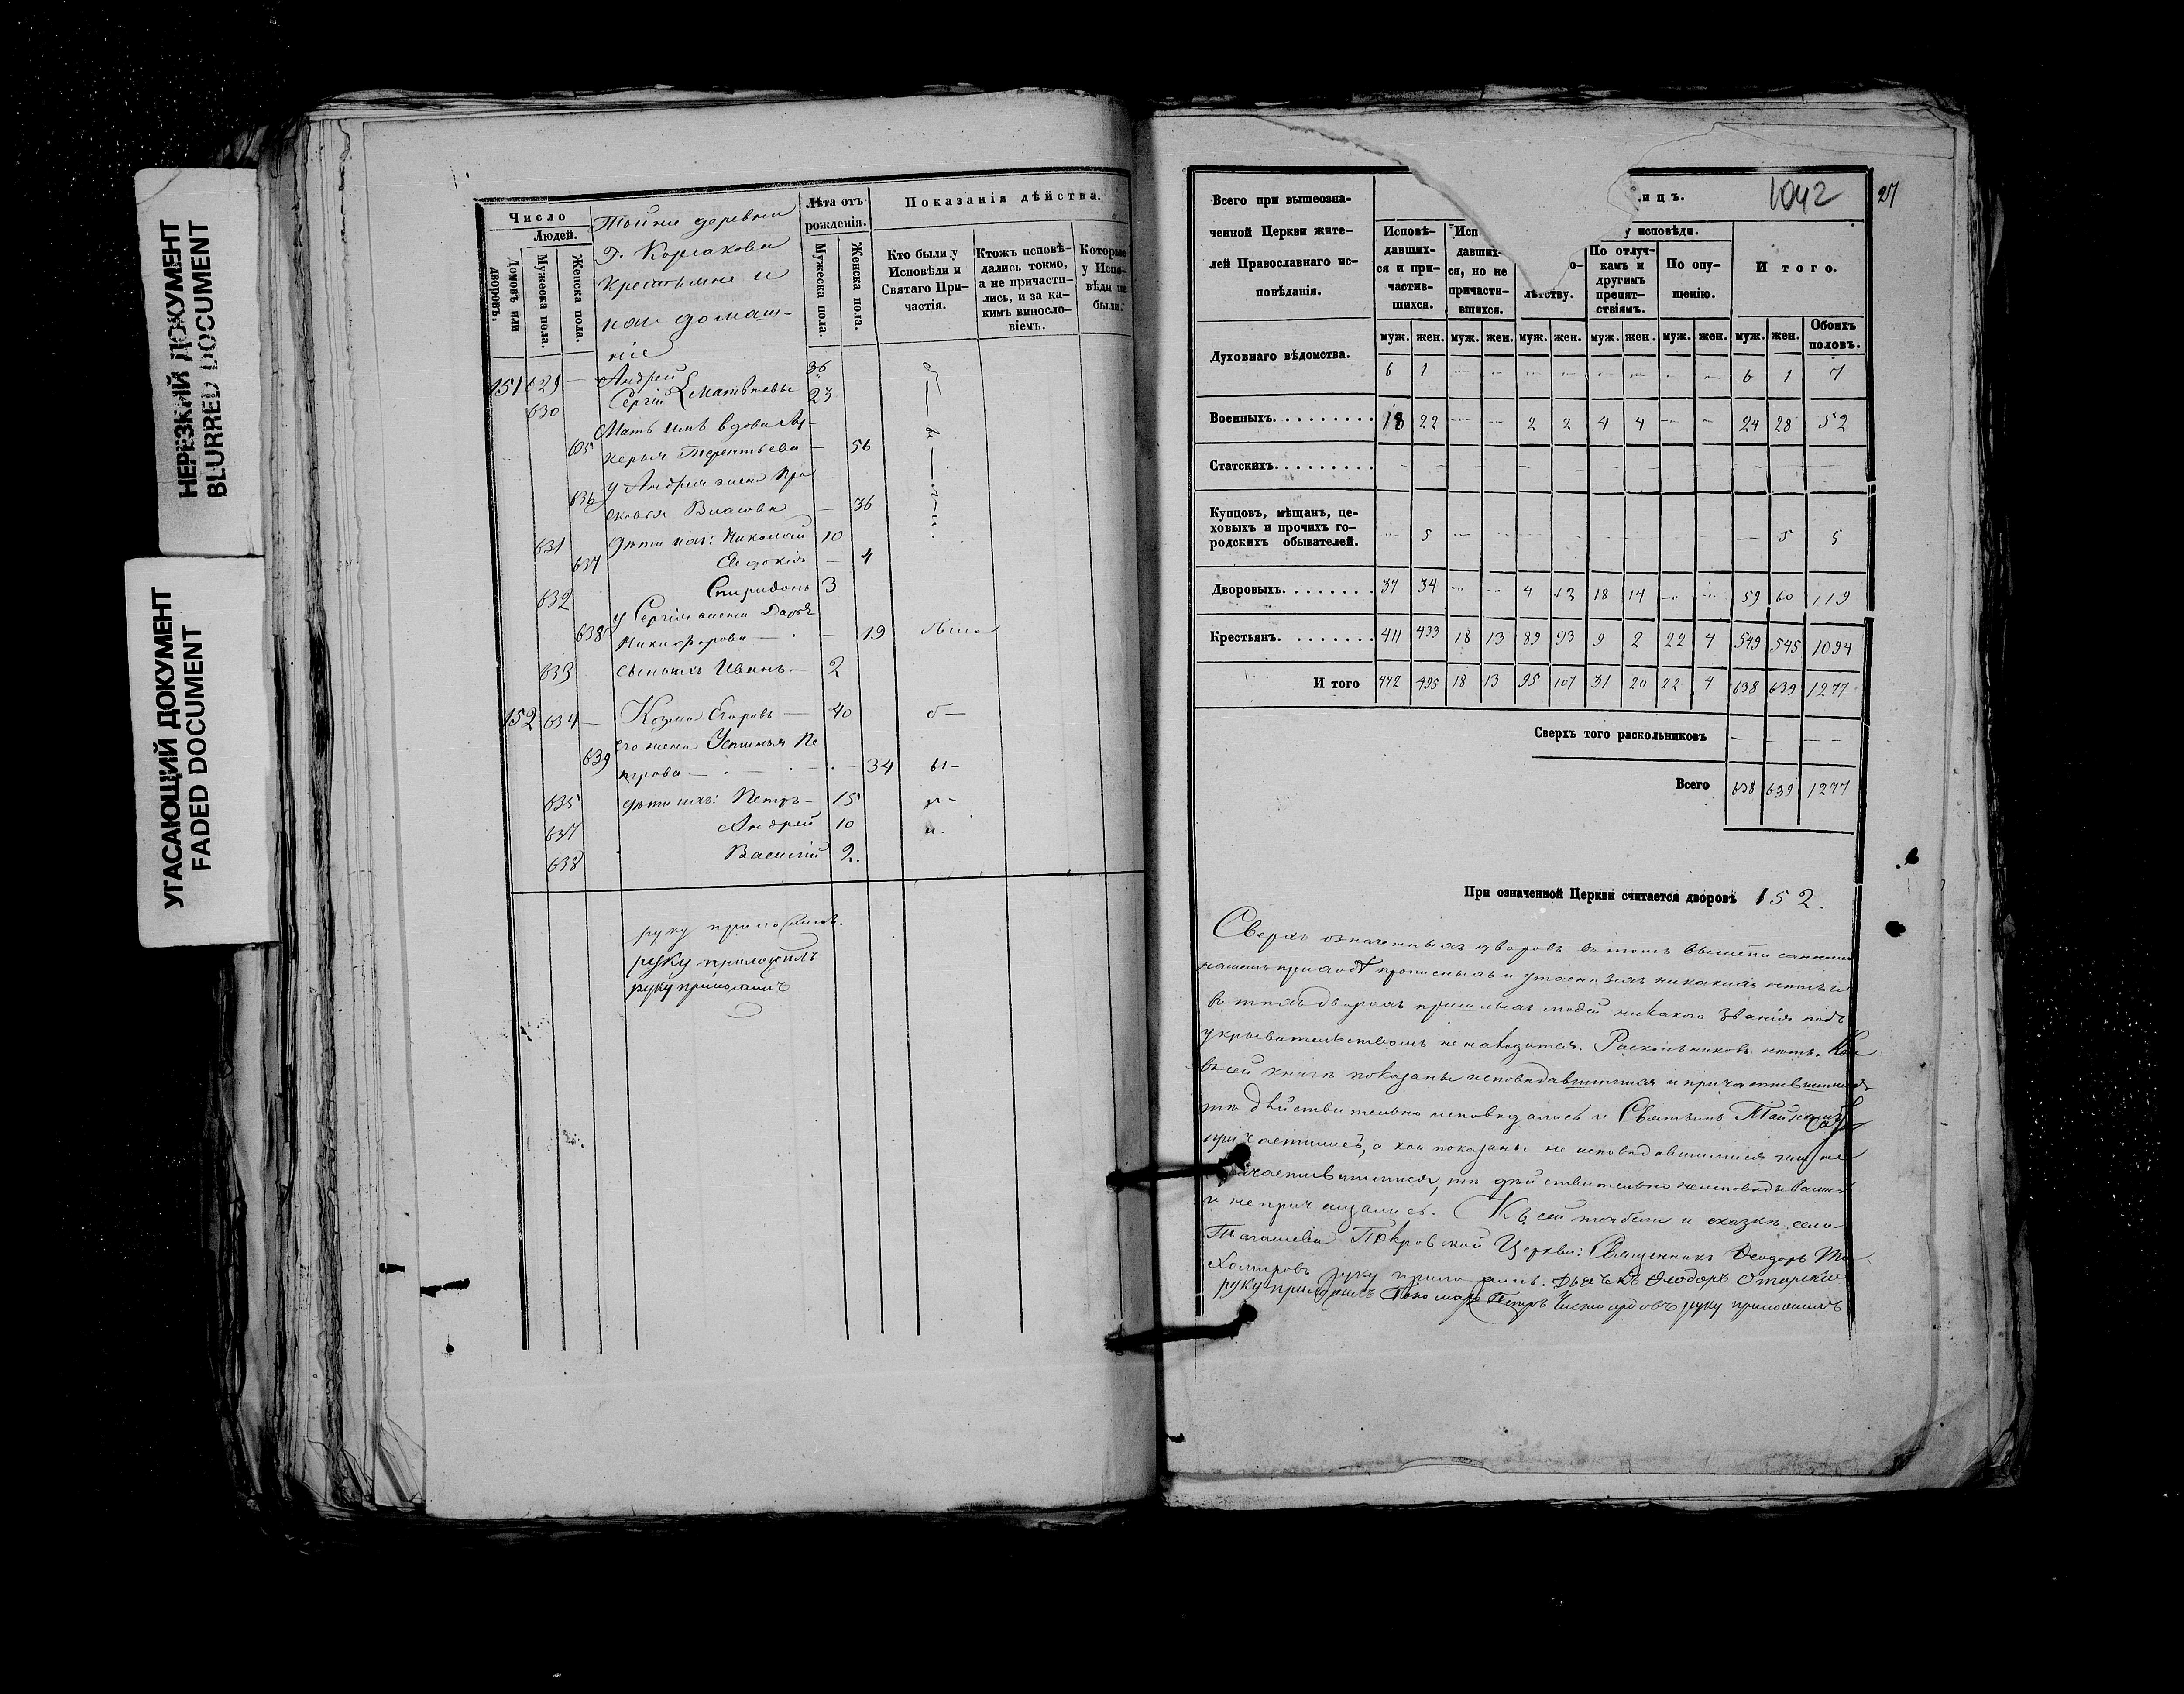 НЕРЕЗКИЙ ДОКУМЕНТ
BLURRED DOCUMENT
УГАСАЮЩИЙ ДОКУМЕНТ
FADED DOCUMENT
Число
Людей.
Домовъ или дворовъ.
Мужеска пола.
Женска пола.
Тойже деревни
Г. Корсакова
крестьяне и
ихъ домаш-
ніе
Лѣта отъ рожденія.
Мужеска пола.
Женска пола.
Показанія дѣйства.
Кто были у Исповѣди и Святаго Причастія.
Ктожъ исповѣдались токмо, а не причастились, и за какимъ винословіемъ.
Которые у Исповѣди не были.
151 629 — Андрей 36
630 Сергій } Матвѣевы 23
Мать ихъ вдова
635 Терентьева — 56
636 у Андрея жена Пра
сковья Власова — 36
631 дѣти ихъ: Николай 10
637 Евдокія — 4
632 Спиридонъ 3
у Сергія жена Дарья
638 Никифорова — — 19
633 сынъ ихъ Иванъ — 2
152 634 — Козма Егоровъ — 40 б —
его жена Устинья Пе
639 трова — 34 ы —
635 дѣти ихъ: Петръ — 15
637 Андрей 10 и.
638 Василій 2.
руку приложилъ.
руку приложилъ
руку приложилъ
1042
27
Всего при вышеозна-
ченной Церкви жите-
лей Православнаго ис-
повѣданія.
лицъ.
Исповѣдавшихся и причастившихся.
давшихся, но не причастившихся.
у исповѣди.
лѣтству.
По отлучкамъ и другимъ препятствіямъ.
По опущенію.
Итого.
муж. жен. муж. жен. муж. жен. муж. жен. муж. жен. муж. жен. Обоихъ половъ.
Духовнаго вѣдомства. 6 1 — — — — — — — — 6 1 7
Военныхъ. 18 22 — — 2 2 4 4 — — 24 28 52
Статскихъ.
Купцовъ, мѣщан, це-
ховыхъ и прочихъ го-
родскихъ обывателей. — 5 — — — 5 5
Дворовыхъ. 37 34 — — 4 12 18 14 — — 59 60 119
Крестьянъ. 411 433 18 13 89 93 9 2 22 4 549 545 1094
И того 472 495 18 13 95 107 31 20 22 4 638 639 1277
Сверхъ того раскольниковъ — — —
Всего 638 639 1277
При означенной Церкви считается дворовъ 152.
Сверхъ означенныхъ дворовъ въ томъ вышеписанномъ
нашемъ приходѣ прописныхъ и утаенныхъ никакихъ нѣтъ и
въ тѣхъ дворахъ пришлыхъ людей никакого званія подъ
укрывательствомъ не находится. Раскольниковъ нѣтъ. Кои
въ сей книгѣ показаны исповѣдавшимися и причастившимися
тѣ дѣйствительно исповѣдались и Святымъ Тайнамъ
причастились, а кои показаны не исповѣдавшимися
причастившимися, тѣ дѣйствительно не исповѣдывались
и не причащались. Къ сей табели и сказкѣ села
Покровской Церкви: Священникъ Феодоръ Ти-
хомировъ руку приложилъ. Дьячекъ Феодоръ
руку приложилъ Пономарь Петръ руку приложилъ